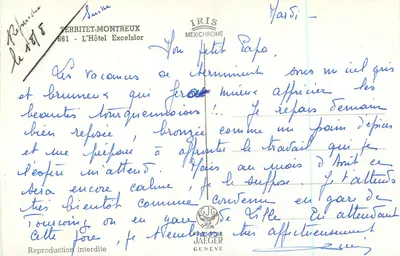 Suisse
Mardi -
Répondu
le 18/8
TERRITET-MONTREUX
861 - L'Hôtel Excelsior
IRIS
MEXICHROME
Mon petit Papa,
Les vacances se terminent sous un ciel gris
et brumeux qui fera mieux apprécier les
beautés tourquennoises!!.. Je repars demain
bien reposée, bronzée comme un pain d'épices
et me prépare à affronter le travail qui je
l'espère m'attend. Mais au mois d'août ce
sera encore calme, je le suppose. Je t'attends
très bientôt comme convenu en gare de
Tourcoing ou en gare de Lille. En attendant
cette joie, je t'embrasse très affectueusement
JAEGER
GENÈVE
Reproduction interdite